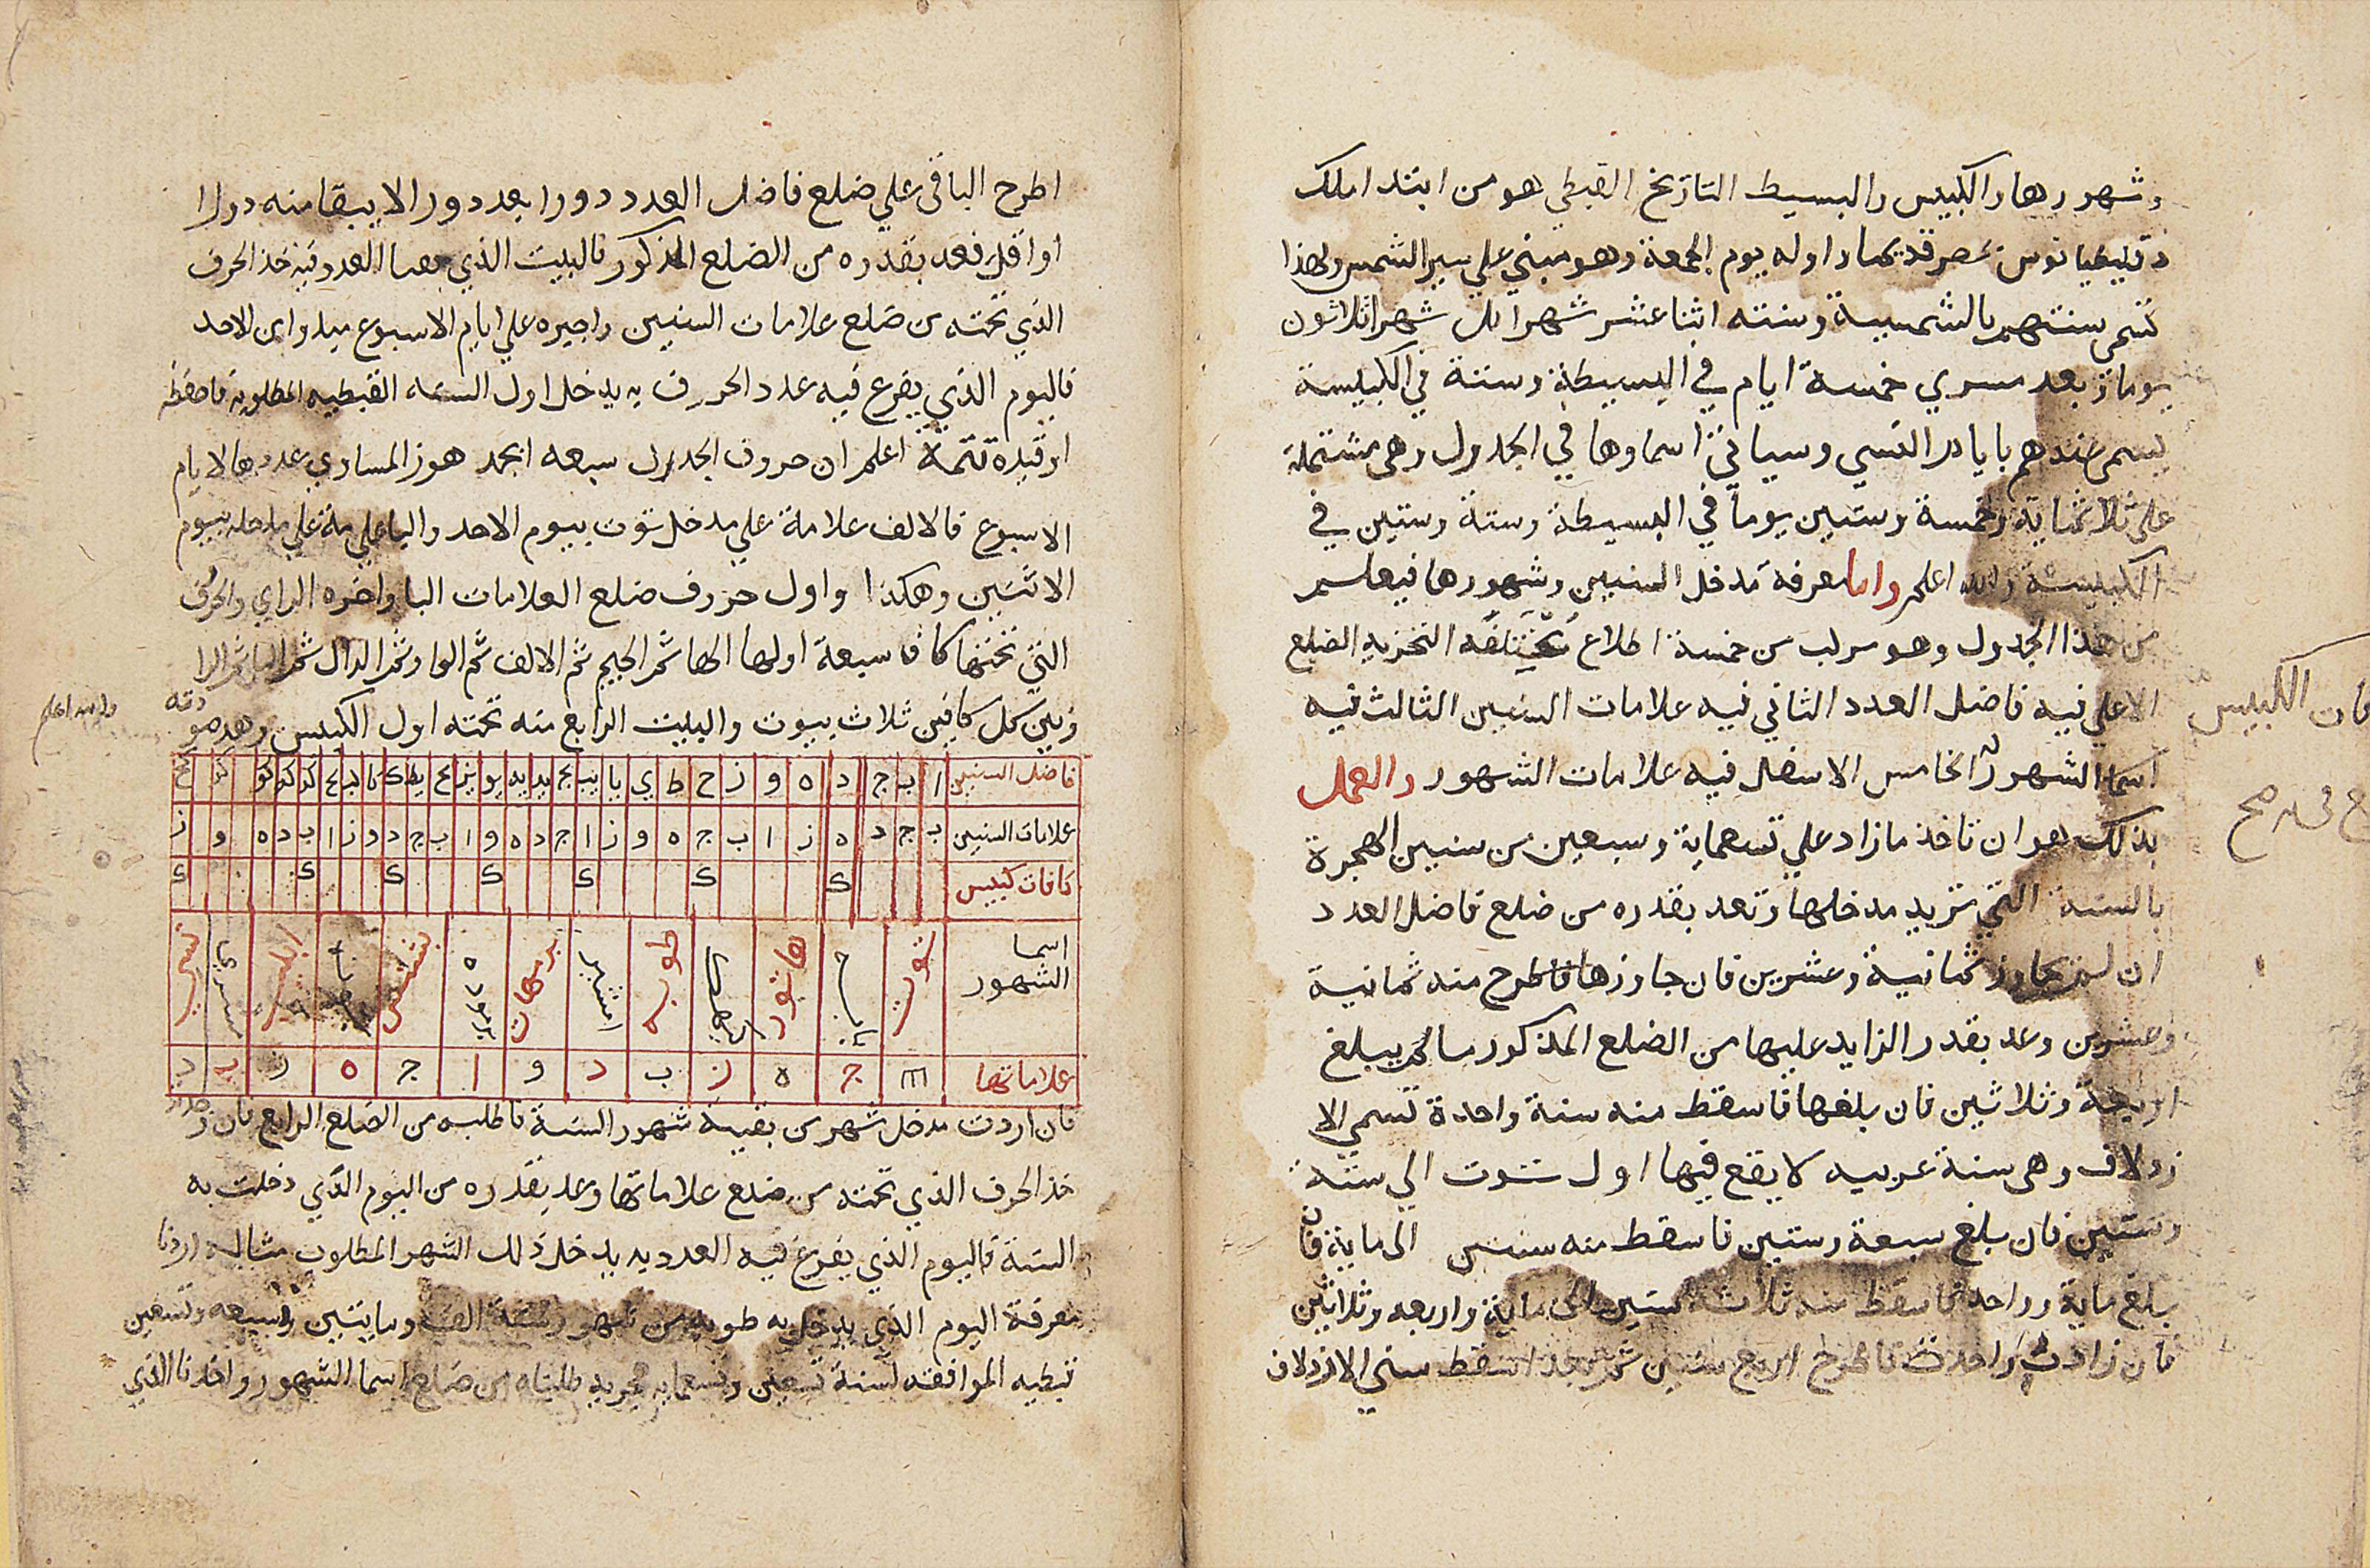 وشهورها والكبيس والبسيط التاريخ القبطي هو من ابتدا ملك
دقليطيانوس بمصر قديما واوله يوم الجمعة وهو مبني علي سير الشمس ولهذا
تسمي سنتهم بالشمسية وسنته اثنا عشر شهرا كل شهر ثلاثون
يوما وبعد مسري خمسة ايام في البسيطة وستة في الكبيسة
يسمي عندهم بايام النسي وسياتي اسماوها في الجدول وهي مشتملة
علي ثلاثماية وخمسة وستين يوما في البسيطة وستة وستين في
الكبيسة والله اعلم واما معرفة مدخل السنين وشهورها فيعلم
من هذا الجدول وهو مركب من خمسة اضلاع مختلفه التجزيه الضلع
الاعلي فيه فاضل العدد الثاني فيه علامات السنين الثالث فيه
كافات الكبيس
الرابع فيه صح
اسما الشهور والخامس الاسفل فيه علامات الشهور والعمل
بذلك هو ان تاخذ ما زاد علي تسعماية وسبعين من سنين الهجرة
بالسنة التي تريد مدخلها وتعد بقدره من ضلع فاضل العدد
ان لم يجاوز ثمانية وعشرين فان جاوزها فاطرح منه ثمانية
وعشرين وعد بقدر الزايد عليها من الضلع المذكور ما لم يبلغ
اربعة وثلاثين فان بلغها فاسقط منه سنة واحدة تسمي الا
زدلاف وهي سنة عربيه لا يقع فيها اول توت الي ستة
وستين فان بلغ سبعة وستين فاسقط منه سنتين الي ماية فان
بلغ ماية وواحد فاسقط منه ثلاث سنين الي ماية واربعه وثلاثين
فان زادت واحدة فاطرح اربع سنين ثم بعد اسقط سني الازدلاف
اطرح الباقي علي ضلع فاضل العدد دورا بعد دور الا يبقا منه دورا
او اقل فعد بقدره من الضلع المذكور فالبيت الذي العدد فيه خذ الحرف
الذي تحته من ضلع علامات السنين واجيره علي ايام الاسبوع مبدوا من الاحد
فاليوم الذي يفرغ فيه عدد الحرف به يدخل اول السنه القبطيه المطلوبة فاحفظه
او قيده تتمة اعلم ان حروف الجدول سبعه ابجد هوز المساوي عددها لايام
الاسبوع فالالف علامة علي مدخل توت بيوم الاحد والبا علامة علي مدخله بيوم
الاثنين وهكذا واول حروف ضلع العلامات البا واخره الزاي والحروف
التي تحتها كافا سبعة اولها الها ثم الجيم ثم الالف ثم الواو ثم الدال ثم البا ثم الزا
وبين كل كافين ثلاث بيوت والبيت الرابع منه تحته اول الكبيس وهذه صو
رته
والله اعلم
فاضل السنين ا ب ج د ه و ز ح ط ي يا يب يج يد يه يو يز يح يط ك كا كب كج كد كه كو كز كح
علامات السنين ب ج د ه ز ا ب ج ه و ز ا ج د ه و ا ب ج د و ز ا ب د ه و ز
كافات كبيس ك ك ك ك ك ك ك
اسما الشهور توت بابه هاتور كيهك طوبه امشير برمهات برموده بشنس بونه ابيب مسري نسي
علاماتها ج ه ز ب د و ا ج ه ز ب د
فان اردت مدخل شهر من بقية شهور السنة فاطلبه من الضلع الرابع فان
خذ الحرف الذي تحته من ضلع علاماتها وعد بقدره من اليوم الذي دخلت به
السنة فاليوم الذي يفرغ فيه العدد به يدخل ذلك الشهر المطلوب مثاله اردنا
معرفة اليوم الذي يدخل به طوبه من شهور سنة الف ومايتين وسبعه وتسعين
قبطيه الموافقه لسنة تسعين وتسعمايه هجريه طلبناه من ضلع اسما الشهور واخذنا الذي